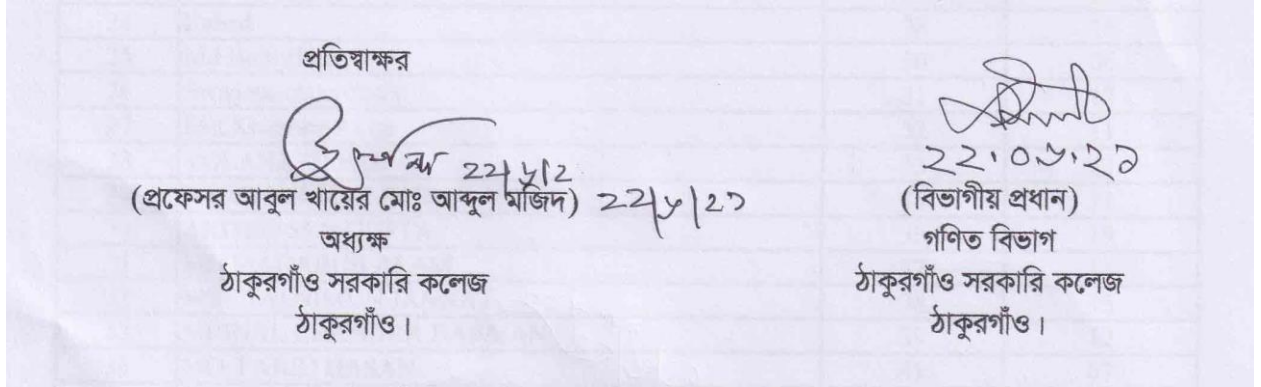 প্রতিস্বাক্ষর
২২/৮/২
(প্রফেসর আবুল খায়ের মোঃ আব্দুল মজিদ) ২২/৮/২১
অধ্যক্ষ
ঠাকুরগাঁও সরকারি কলেজ
ঠাকুরগাঁও।
২২.০৮.২১
(বিভাগীয় প্রধান)
গণিত বিভাগ
ঠাকুরগাঁও সরকারি কলেজ
ঠাকুরগাঁও।